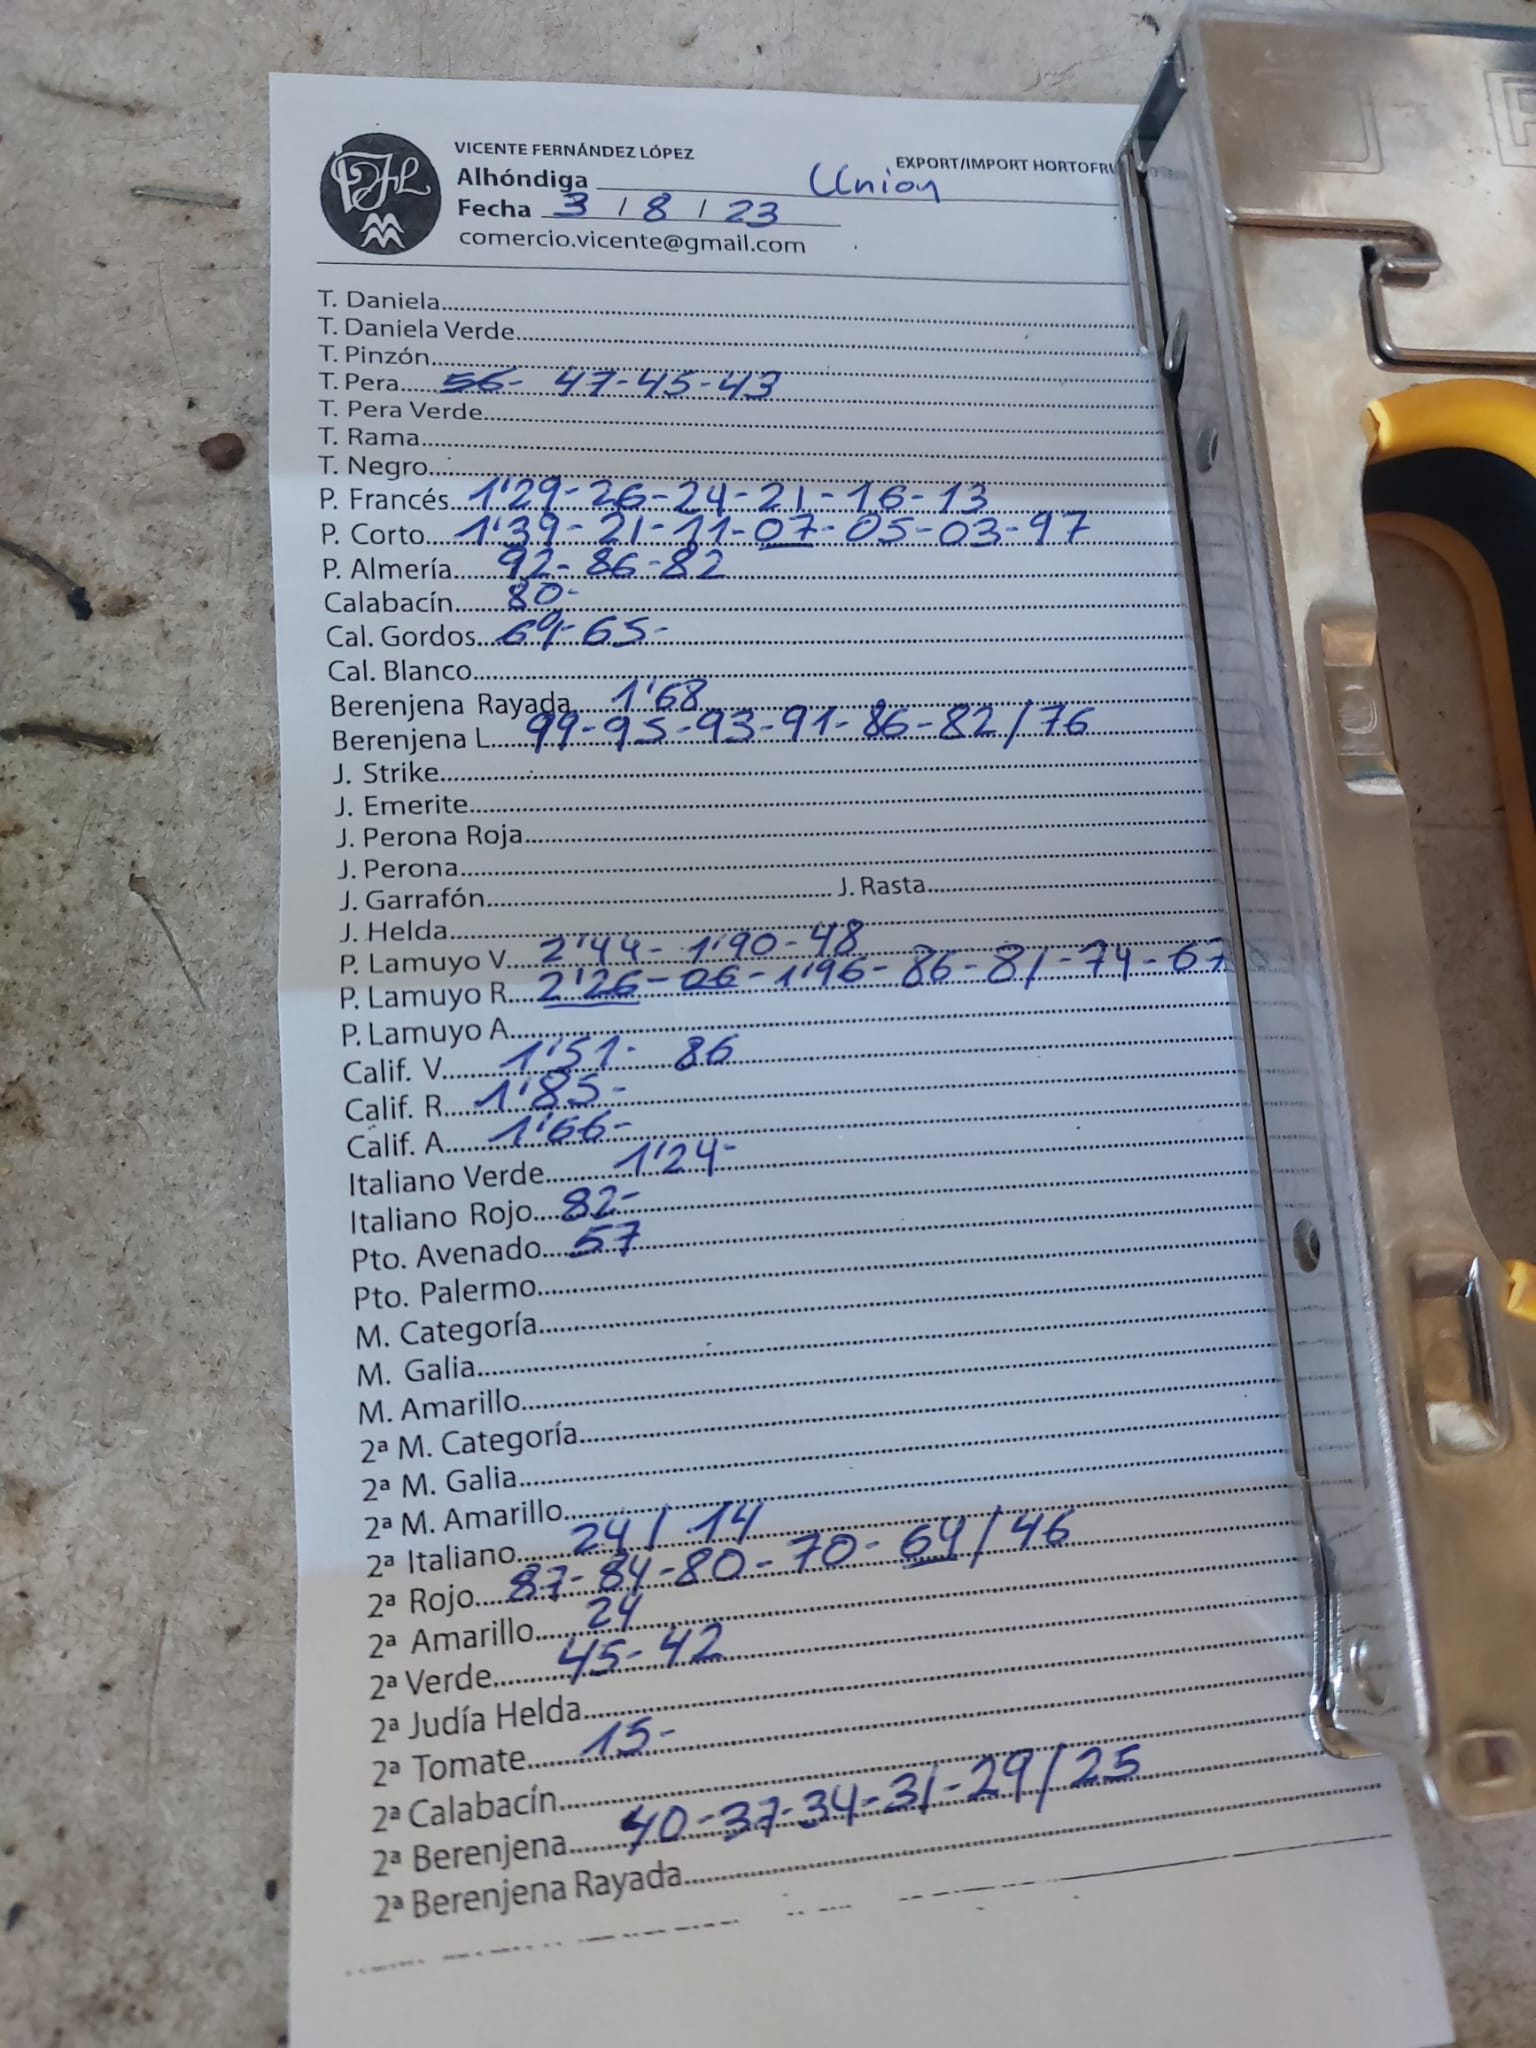 VICENTE FERNÁNDEZ LÓPEZ
EXPORT/IMPORT HORTOFRU
Alhóndiga Union
Fecha 3 / 8 / 23
comercio.vicente@gmail.com
T. Daniela
T. Daniela Verde
T. Pinzón
T. Pera 56- 47-45-43
T. Pera Verde
T. Rama
T. Negro
P. Francés 1'29-26-24-21-16-13
P. Corto 1'39-21-11-07-05-03-97
P. Almería 92-86-82
Calabacín 80-
Cal. Gordos 69-65-
Cal. Blanco
Berenjena Rayada 1'68
Berenjena L 99-95-93-91-86-82/76
J. Strike
J. Emerite
J. Perona Roja
J. Perona
J. Garrafón J. Rasta
J. Helda
P. Lamuyo V 2'44-1'90-48
P. Lamuyo R 2'26-06-1'96-86-81-74-67
P. Lamuyo A
Calif. V 1'51- 86
Calif. R 1'85-
Calif. A 1'66-
Italiano Verde 1'24-
Italiano Rojo 82-
Pto. Avenado 57
Pto. Palermo
M. Categoría
M. Galia
M. Amarillo
2ª M. Categoría
2ª M. Galia
2ª M. Amarillo
2ª Italiano 24/14
2ª Rojo 87-84-80-70-64/46
2ª Amarillo 24
2ª Verde 45-42
2ª Judía Helda
2ª Tomate 15-
2ª Calabacín
2ª Berenjena 40-37-34-31-29/25
2ª Berenjena Rayada